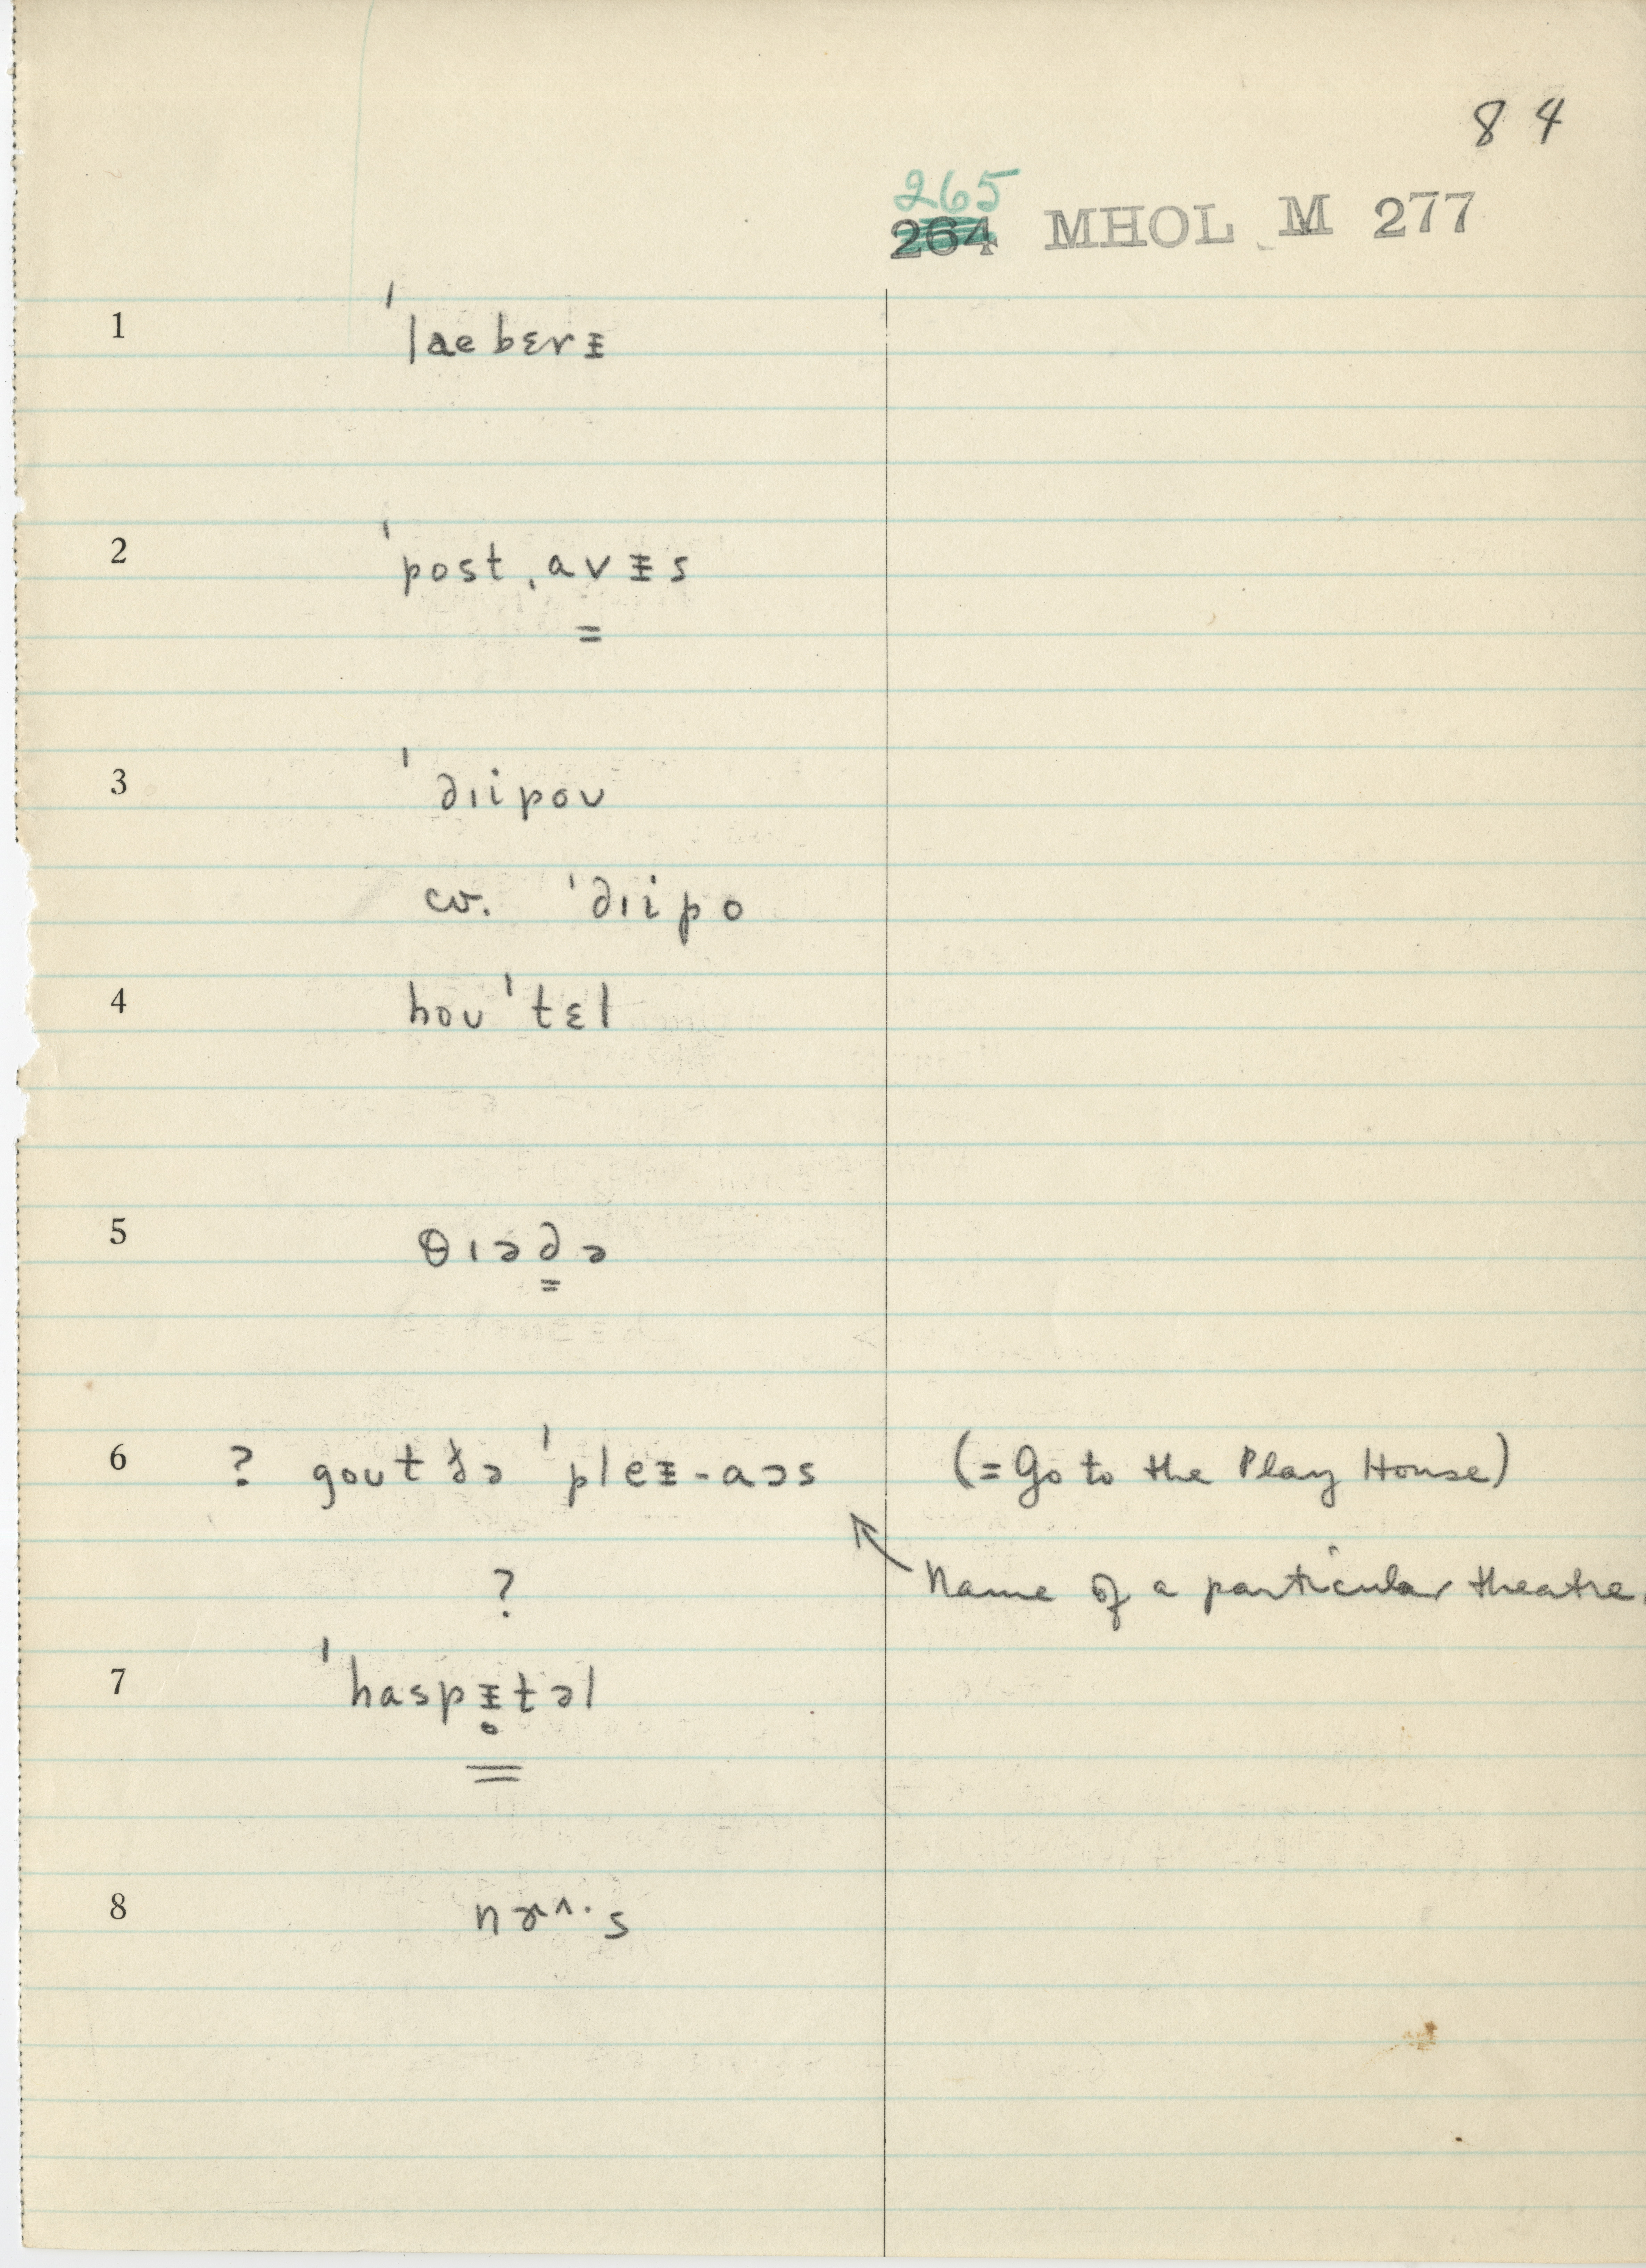 84
265
264 MHOL M 277
1 ˈlaebɛrᵻ
2 ˈpost ˌavᵻs
=
3 ˈdɪipoʊ
cv. ˈdɪipo
4 hoʊˈtɛl
5 θɪədə
=
6 ? goʊt ðə ˈpleᵻ-aɔs (= Go to the Play House)
? Name of a particular theatre.
7 ˈhaspᵻ̥təl
=
8 nɝ^·s